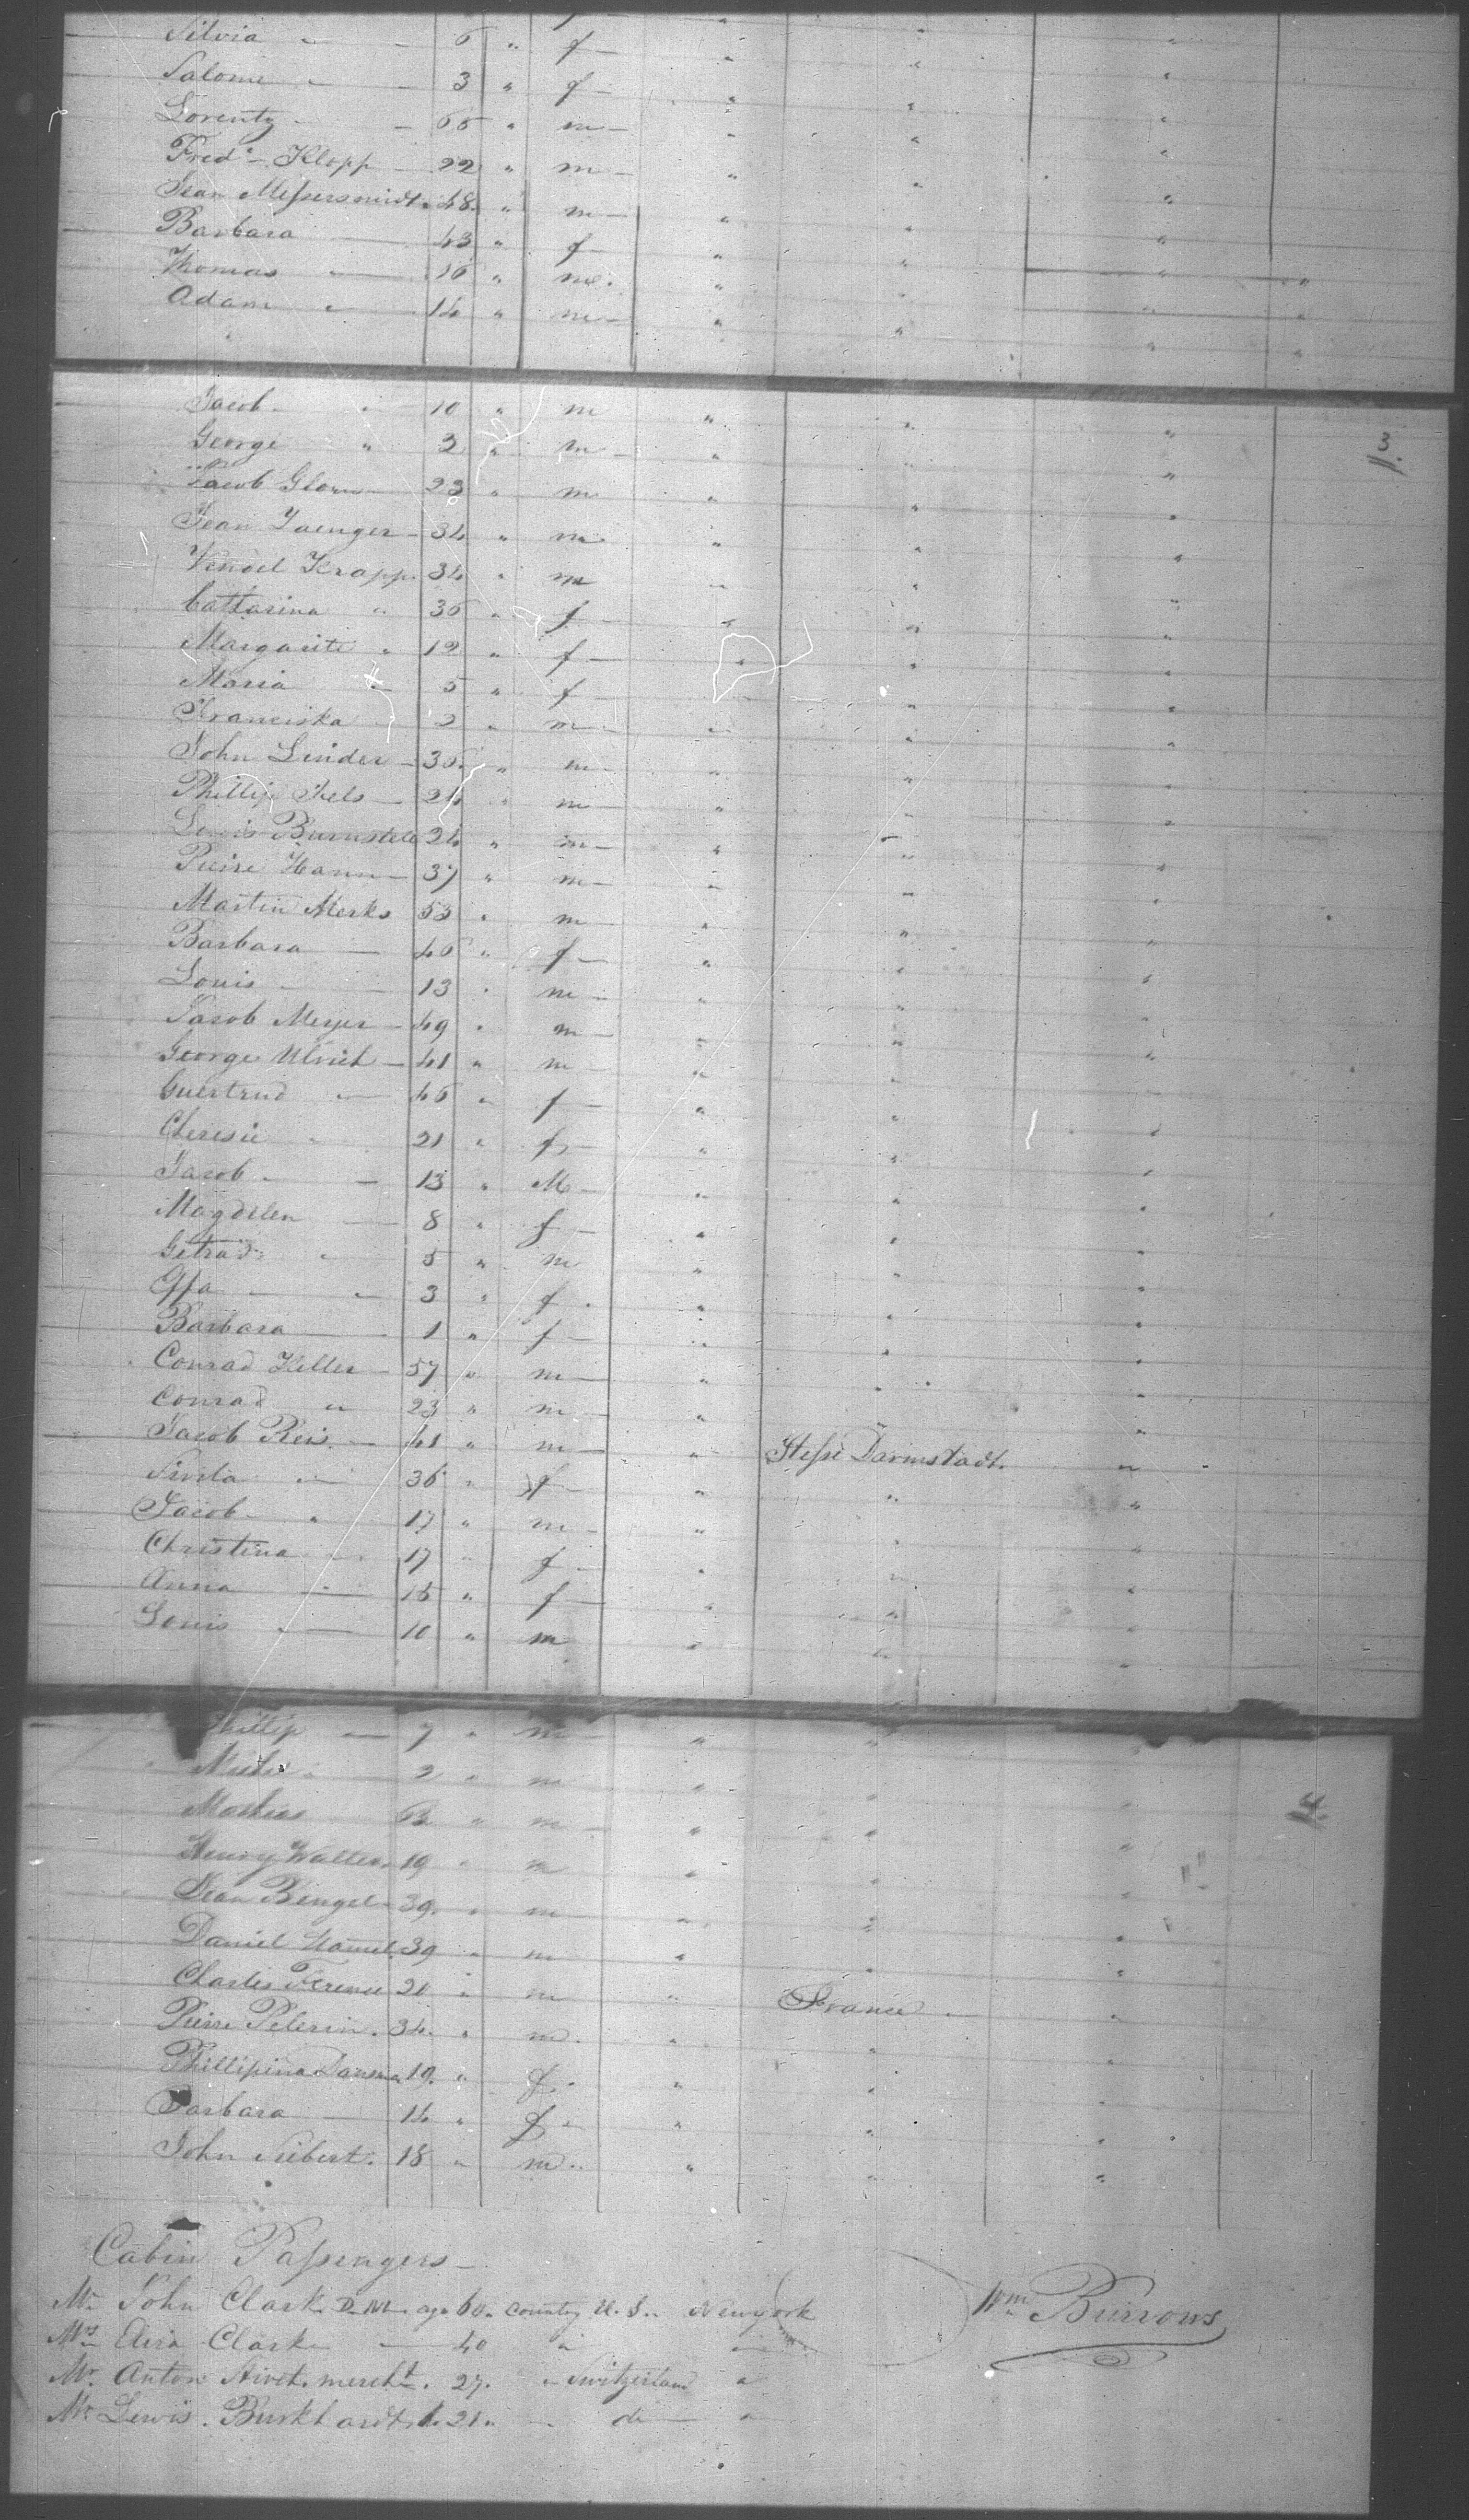 Silvia " - 6 " f - " " "
Salome " - 3 " f - " " "
Lorentz - - 65 " m - " " "
Fred^k - Klopp - 22 " m - " " "
Jean Messersmidt - 48 " m - " " "
Barbara - 43 " f - " " "
Thomas - 16 " m " " "
Adam " - 14 " m - " " "
Jacob - " - 10 " m " " "
George " 2 " m - " " " 3.
Jacob 23 " m " " "
Jean Yaenger - 34 " m " " "
Krapp 34 " m " " "
Cattarina " 36 " f " " "
Margarite " 12 " f - " " "
Maria - 5 " f - " " "
Franciska 2 " m - " " "
John Linder - 36 " m - " " "
Phillip - 24 " m - " " "
24 " m - " " "
Pierre Hann - 37 " m - " " "
Martin Merks 53 " m " " "
Barbara - 46 " f - " " "
Louis - - 13 " m - " " "
Jacob Meyer - 49 " m - " " "
George Ulrich - 41 " m - " " "
Guertrud - 46 " f - " " "
Cheresie " 21 " f - " " "
Jacob - - 13 " M - " " "
Magdelen - 8 " f - " " "
" 5 " m " " "
- " 3 " f - " " "
Barbara - 1 " f - " " "
Conrad Keller - 57 " m - " " "
Conrad " 23 " m - " " "
Jacob Reis - 41 " m - " Hesse Darmstadt. "
- 36 " f - " " "
Jacob - " 17 " m - " " "
Christina - 17 " f - " " "
Anna - 15 " f - " " "
Louis - 10 " m " " "
Phillip - 7 " m - " " "
2 " m " " "
Mathias " m - " " " 4.
Henry Walter 19 " m " " "
Jean Bengel 39. " m " " "
Daniel 39 " m " " "
Charles 20 " m " France - "
Pierre Pelerin. 34. " m. " " "
Phillipina 19. " f. " " "
Barbara - 14 " f - " " "
John Siebert. 18 " m. " " "
Cabin Passengers -
M^r John Clark D.M. age 60. Country U.S. Newyork W^m Burrows
M^rs Eliza Clark - 40 " "
M^r Anton mercht. 27. " Switzerland "
M^r Lewis. Burkhardt 21. - do - "